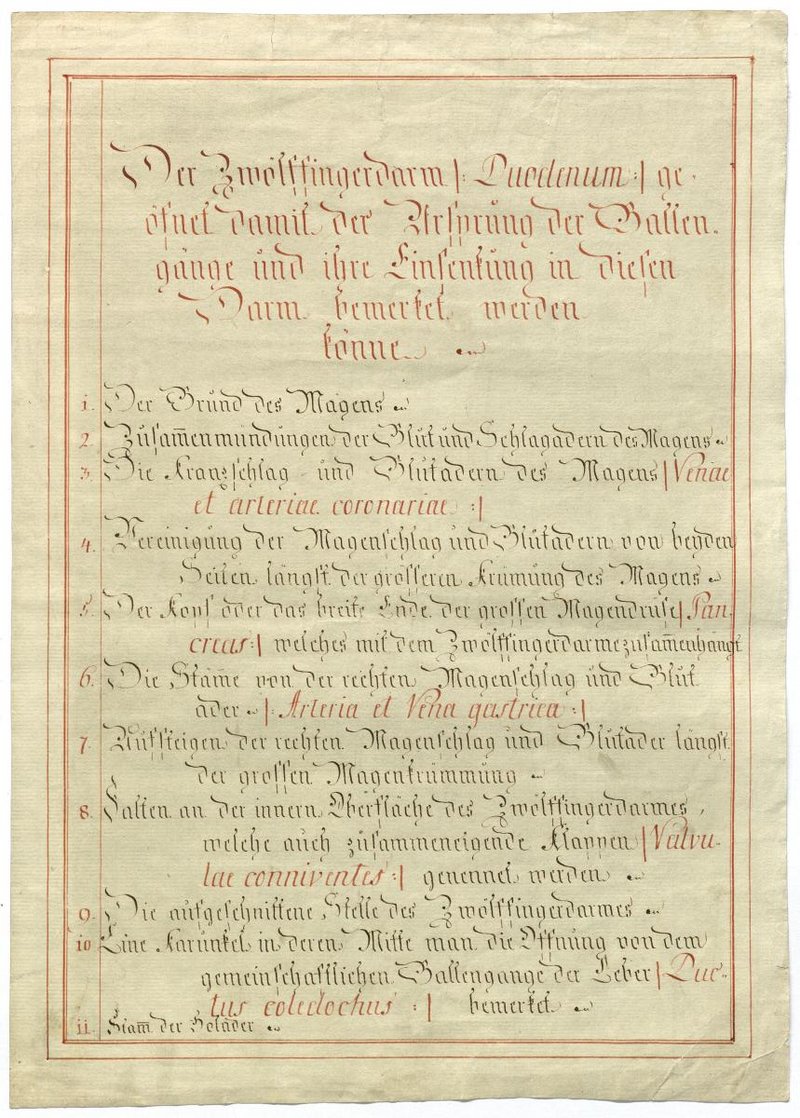 Der Zwölffingerdarm |: Duodenum :| ge-
öfnet damit der Ursprüng der Gallen-
gänge und ihre Einsenkung in diesen
Darm bemerket werden
könne.
1. Der Grund des Magens
2. Zusam̅enmündungen der Blut und Schlagadern des Magens
3. Die Kranzschlag und Blutadern des Magens |Venae
et arteriae coronariae :|
4. Vereinigung der Magenschlag und Blutadern von beyden
Seiten längst der grösseren Krümung des Magens
5. Der Kopf oder das breite Ende der grossen Magendrüse| Pan-
creas:| welches mit dem Zwölffingerdarme zusam̅enhängt
6. Die Stäm̅e von der rechten Magenschlag und Blut
ader |: Arteria et Vena gastrica :|
7. Aufsteigen der rechten Magenschlag und Blutader längst
der grossen Magenkrümmung
8. Falten an der innern Oberfläche des Zwölffingerdarmes,
welche auch zusammeneigende Klappen |Valvu-
lae conniventes :| genennet werden
9. Die aufgeschnittene Stelle des Zwölffingerdarmes
10 Eine Karunkel in deren Mitte man die Offnung von dem
gemeinschaftlichen Gallengange der Leber |Duc-
tus coledochus :| bemerket
11. Stam̅ der